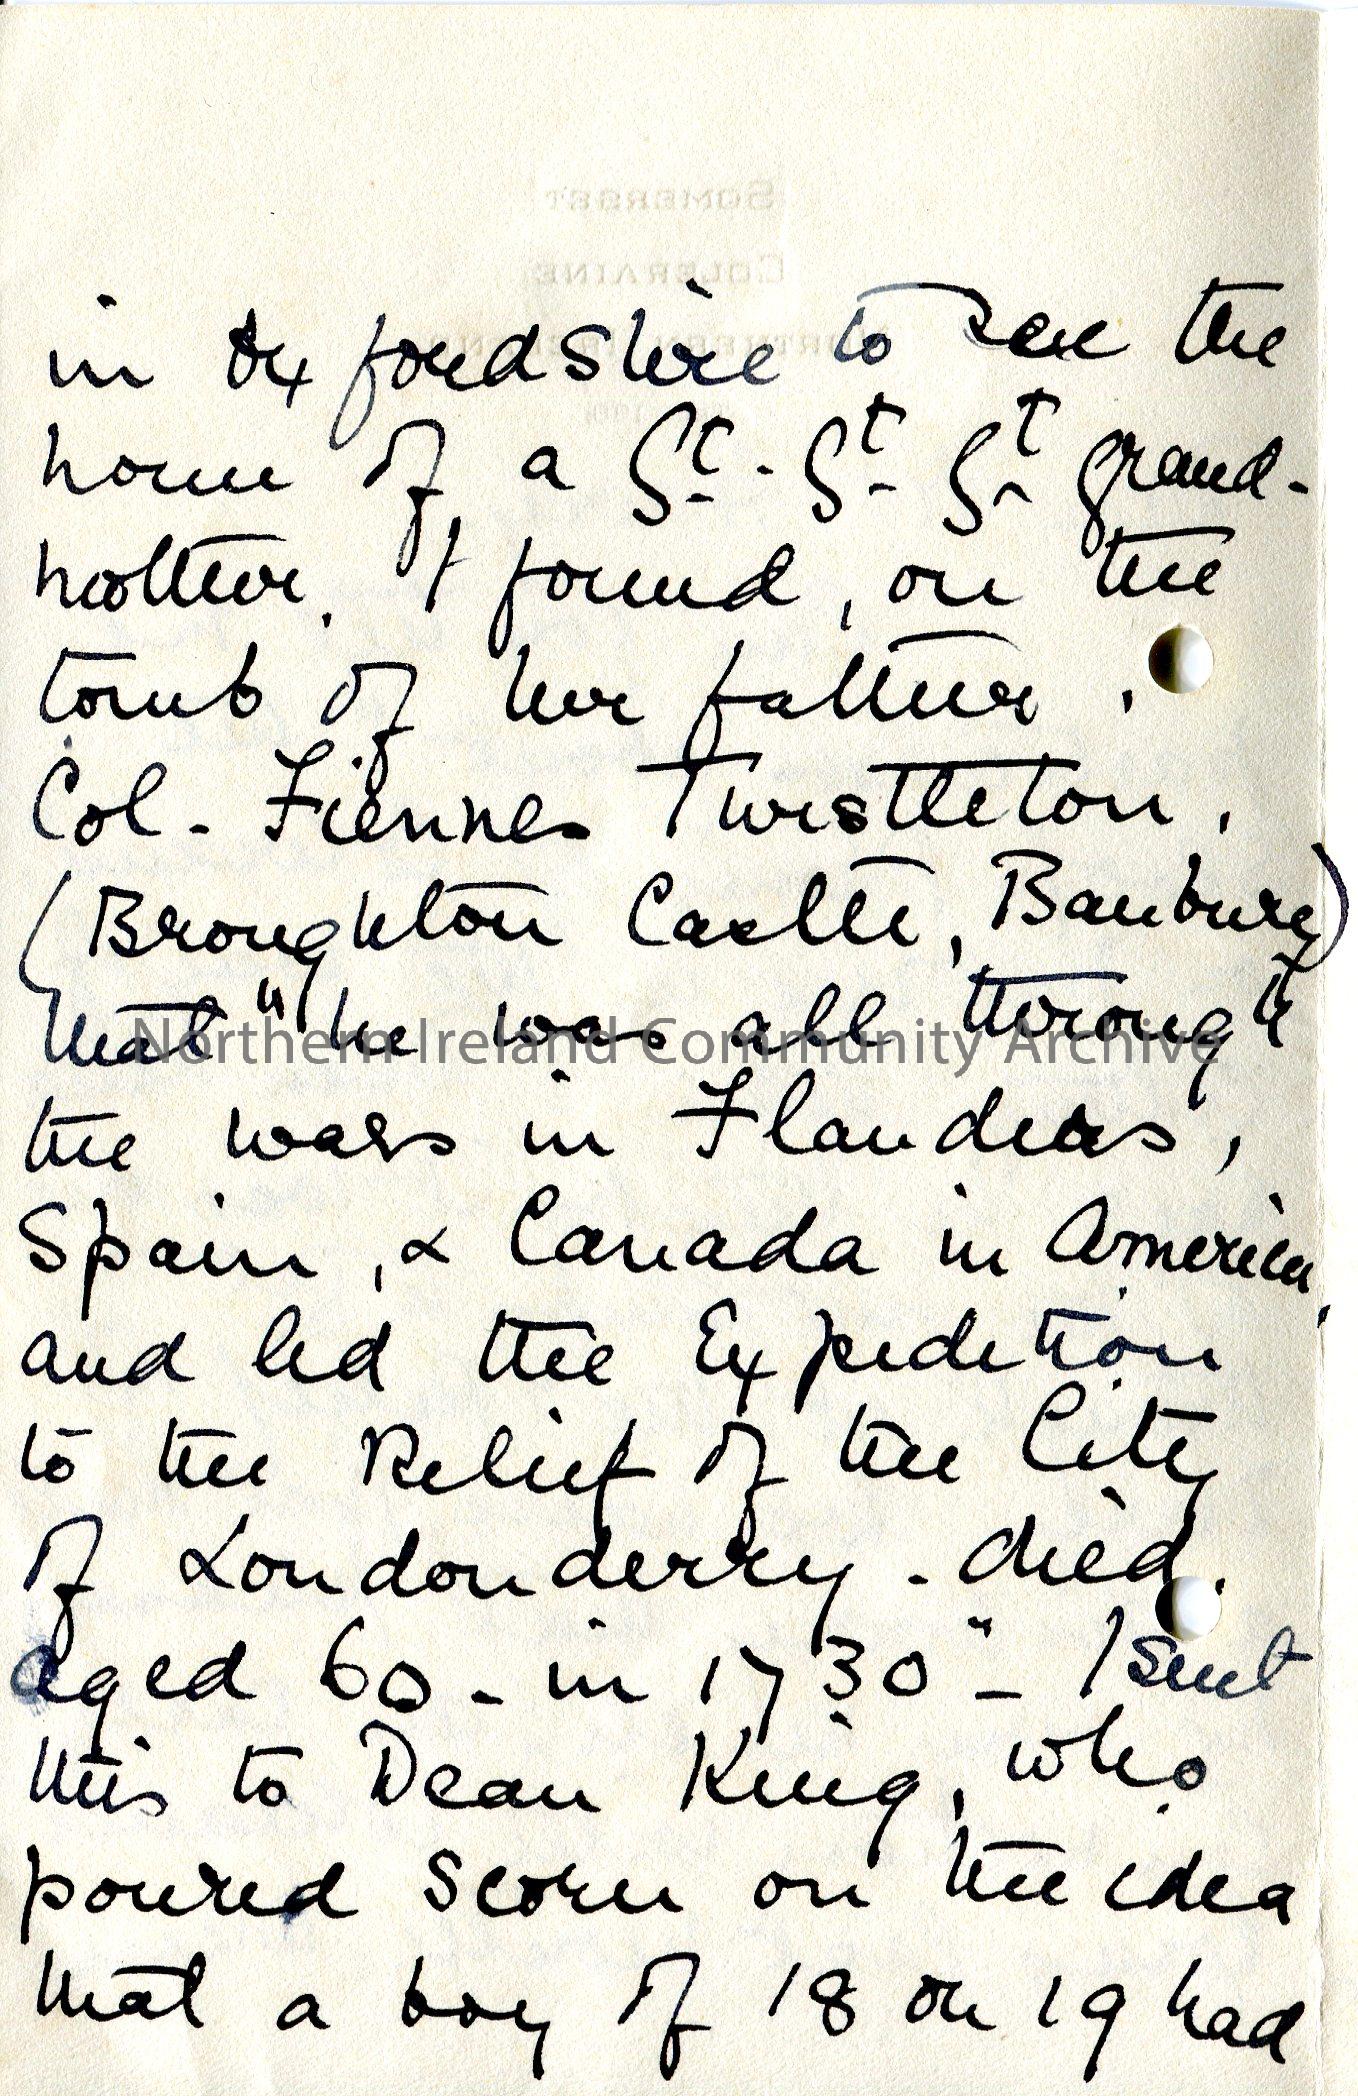 SOMERSET
COLERAINE
NORTHERN IRELAND
in Oxfordshire to see the
home of a Gt. Gt. Gt grand-
mother. I found, on the
tomb of her father,
Col. Fiennes Twistleton,
(Broughton Castle, Banbury)
that "he was all through
the wars in Flanders,
Spain, & Canada in America,
and led the Expedition
to the Relief of the City
of Londonderry - died,
aged 60 - in 1730" - I sent
this to Dean King, who
poured scorn on the idea
that a boy of 18 or 19 had
Northern Ireland Community Archive